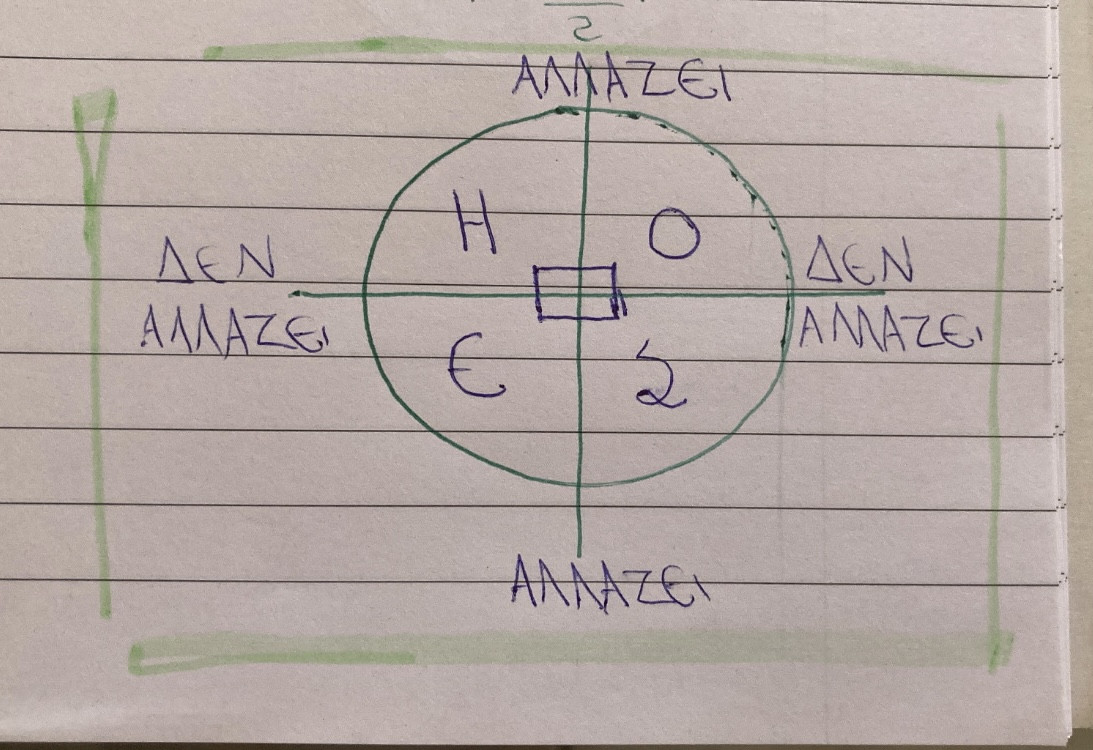 2
ΑΛΛΑΖΕΙ
Η Ο
ΔΕΝ ΔΕΝ
ΑΛΛΑΖΕΙ ΑΛΛΑΖΕΙ
Ε 2
ΑΛΛΑΖΕΙ